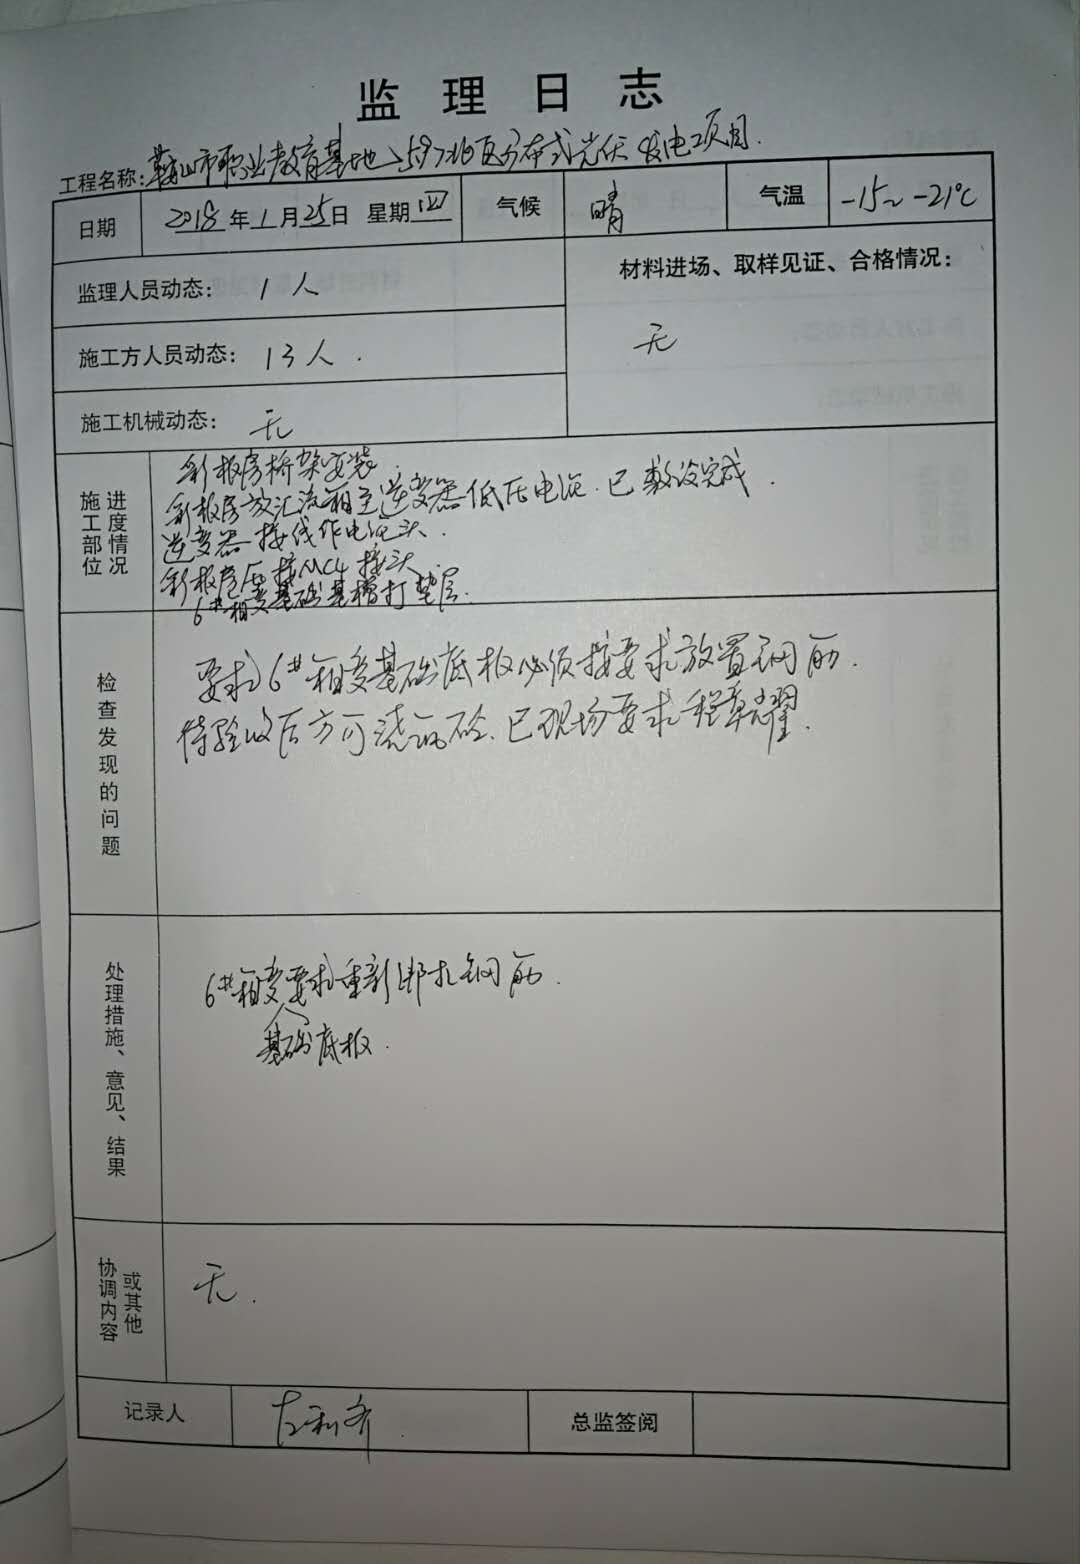 监理日志
工程名称:鞍山市职业教育基地 分布式光伏发电项目.
日期 2018年1月25日 星期四 气候 晴 气温 -15~-21℃
监理人员动态: 1人
材料进场、取样见证、合格情况:
无
施工方人员动态: 13人.
施工机械动态: 无
施工部位
进度情况
彩板房桥架安装.
彩板房放汇流箱至逆变器低压电缆.已敷设完成.
逆变器接线作电缆头.
彩板房 接MC4接头.
6#箱变基础基槽打垫层.
检查发现的问题
要求6#箱变基础底板必须按要求放置钢筋.
待验收后方可浇筑砼.已现场要求程
处理措施、意见、结果
6#箱变要求重新绑扎钢筋.
基础底板.
协调内容
或其他
无.
记录人 左利 总监签阅